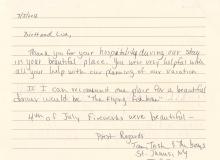 Brett and Lisa,
Thank you for your hospitality during our stay
in your beautiful place. You were very helpful with
all your help with our planning of our vacation.
If I can recommend one place for a beautiful
dinner would be "The Flying Fishbone"
4th of July Fireworks were beautiful -
Best Regards
Jan, Josh & the boys
St. James, NY